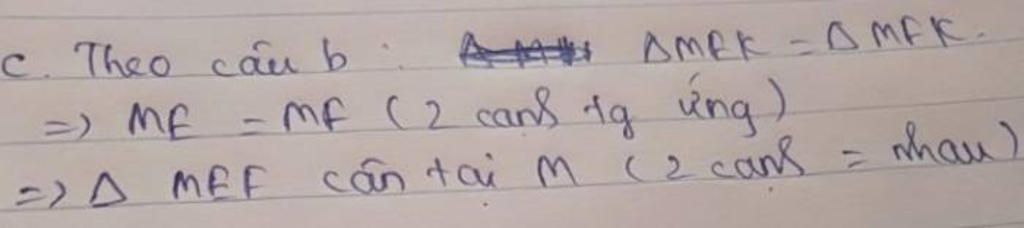 c. Theo câu b : ΔMEK = ΔMFK.
=> ME = MF (2 cạnh tg ứng)
=> Δ MEF cân tại M (2 cạnh = nhau)